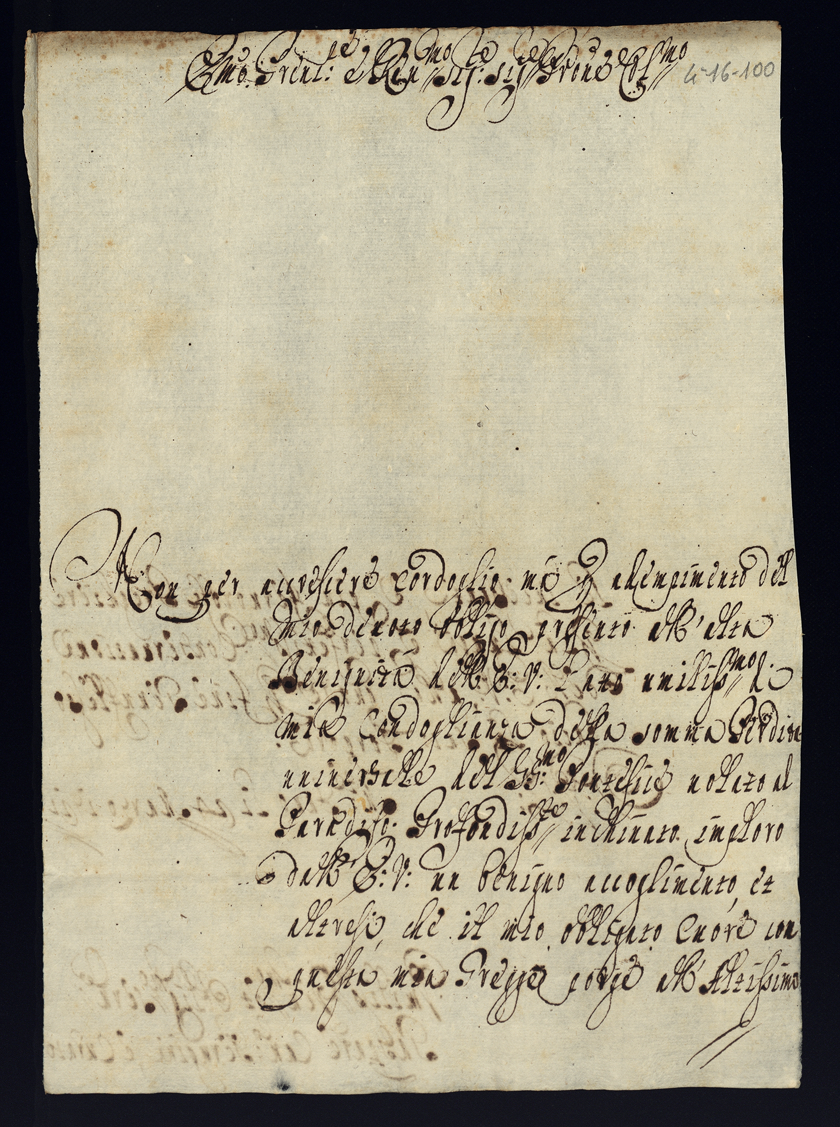 Emo. Prent: e Ren.mo Sig: Sig.re Prone Col.mo 4-16-100
Non per accrescere Cordoglio ma p adempimento del
mio devoto obligo presento all' alta
Benignità dell' E: V: l' atto umiliss.mo d
mia Condoglianza della somma Perdita
universale del SS:mo Pontefice volato al
Paradiso. Profondiss.te inchinato imploro
dall' E: V: un benigno accoglimento, et
altresi, che il mio obligato Cuore con
questa mia Gregge porge all' Altissimo